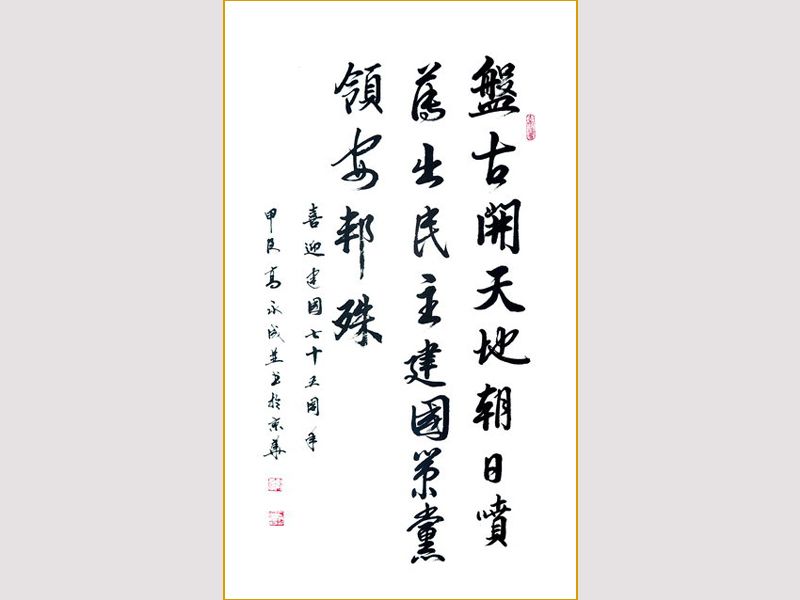 盤古開天地朝日噴
薄出民主建國策黨
領安邦殊
喜迎建國七十五周年
甲辰高永成並书於京華